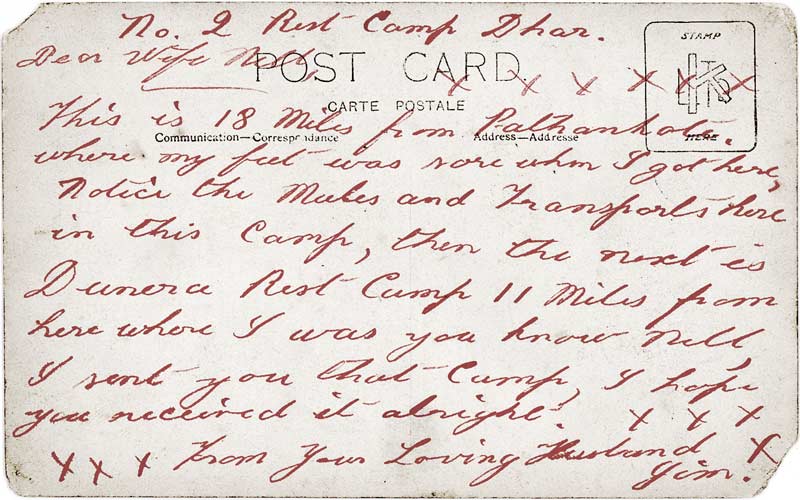 No. 2 Rest Camp Dhar.
Dear Wife Nell,
POST CARD.
x x x x x x
STAMP
HERE
CARTE POSTALE
This is 18 Miles from Pathankote.
Communication—Correspondance
Address—Addresse
where my feet was sore when I got here,
Notice the Mules and Transports here
in this Camp, then the next is
Dunera Rest Camp 11 Miles from
here where I was you know Nell,
I sent you that Camp, I hope
you received it alright. x x x
x x x From Your Loving Husband x
Jim.